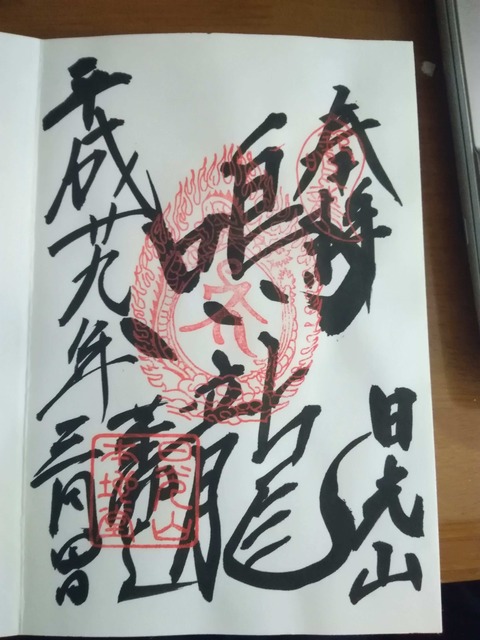 奉拝
日光山
鳴龍
平成廿九年三月四日
日光山
本地堂